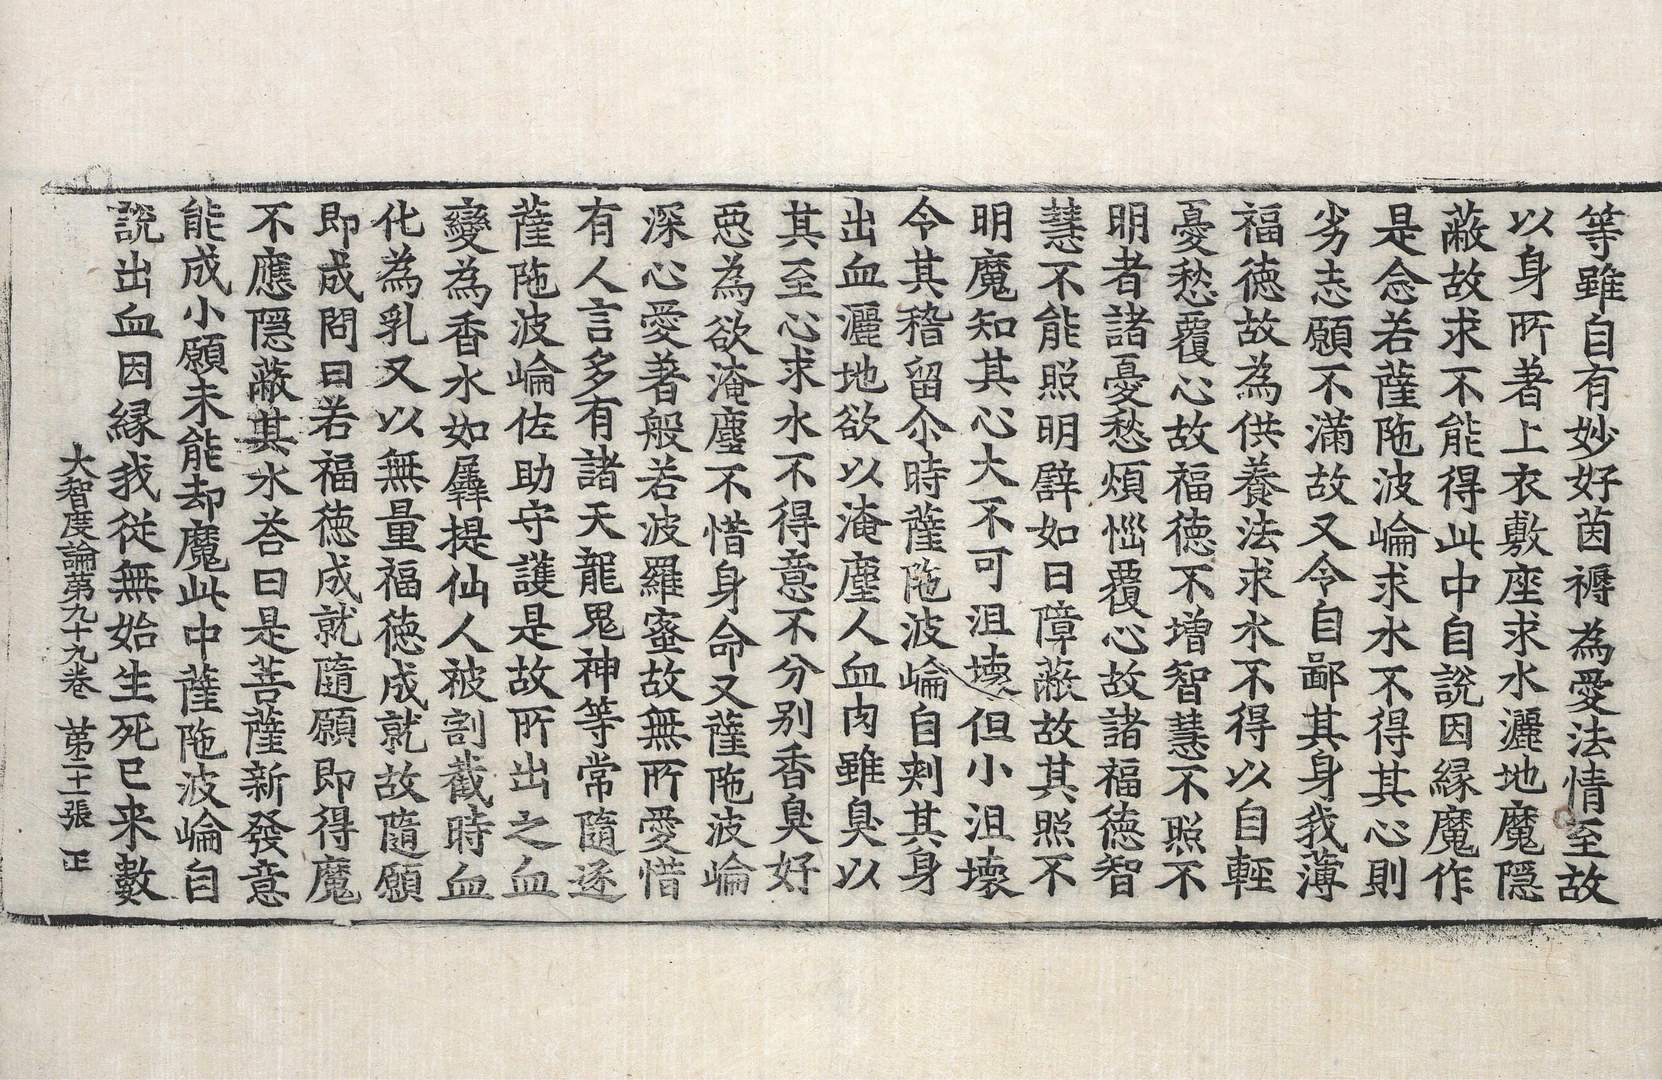 等雖自有妙好茵褥為愛法情至故
以身所著上衣敷座求水灑地魔隱
蔽故求不能得此中自說因緣魔作
是念若薩陁波崘求水不得其心則
劣志願不滿故又令自鄙其身我薄
福德故為供養法求水不得以自輕
憂愁覆心故福德不增智慧不照不
明者諸憂愁煩惱覆心故諸福德智
慧不能照明譬如日障蔽故其照不
明魔知其心大不可沮壞但小沮壞
令其稽留尒時薩陁波崘自刾其身
出血灑地欲以淹塵人血肉雖臭以
其至心求水不得意不分別香臭好
惡為欲淹塵不惜身命又薩陁波崘
深心愛著般若波羅蜜故無所愛惜
有人言多有諸天龍鬼神等常隨逐
薩陁波崘佐助守護是故所出之血
變為香水如羼提仙人被割截時血
化為乳又以無量福德成就故隨願
即成問曰若福德成就隨願即得魔
不應隱蔽其水荅曰是菩薩新發意
能成小願未能却魔此中薩陁波崘自
說出血因緣我從無始生死已来數
大智度論第九十九卷 第二十一張 正